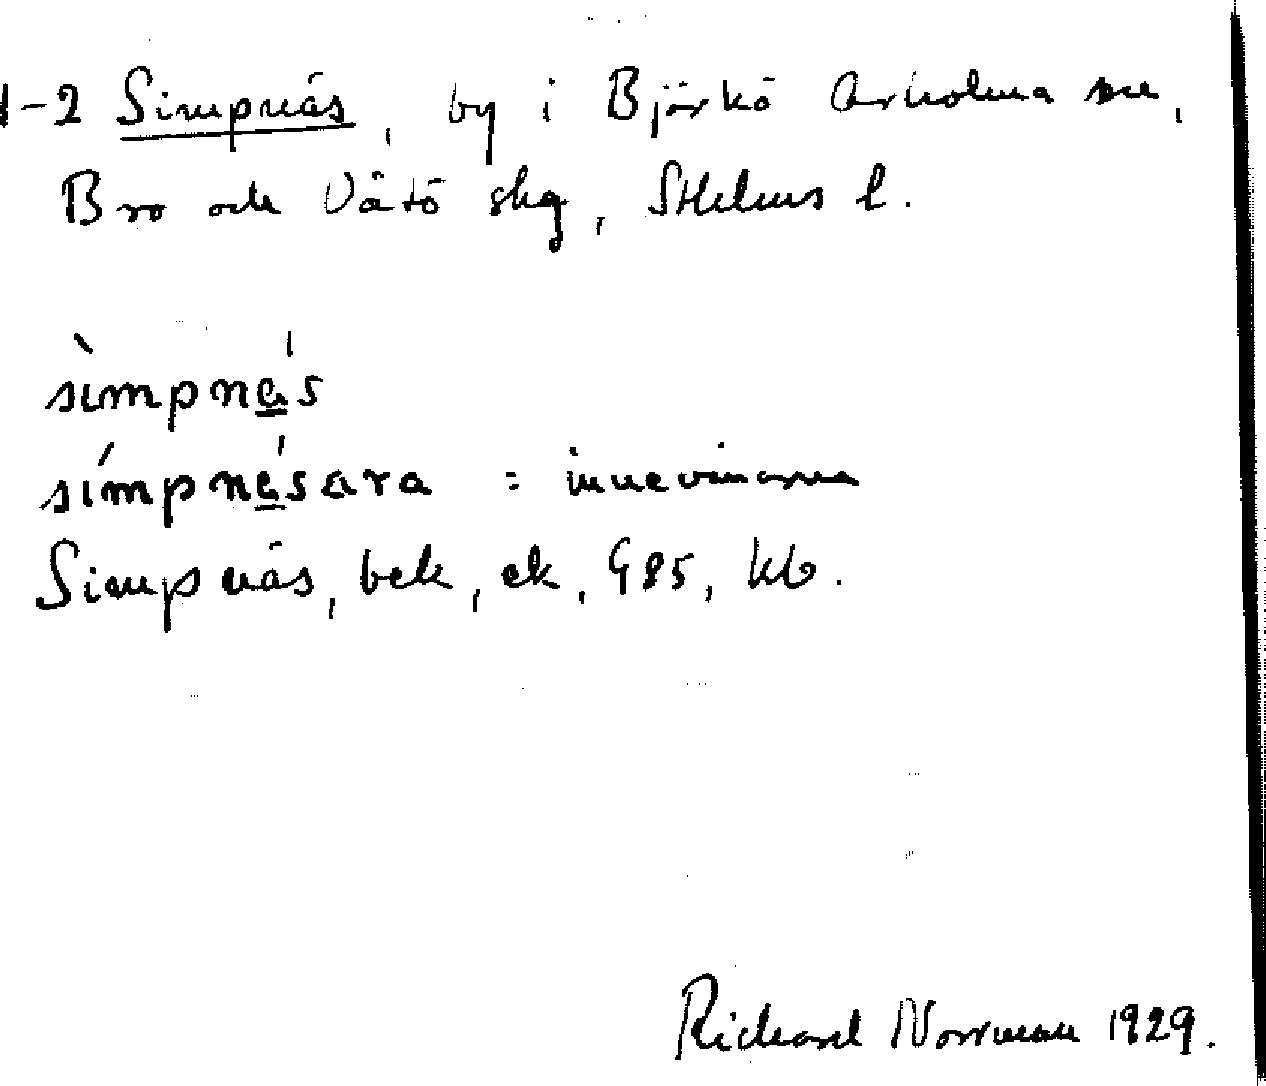 1-2 Simpnäs, by i Björkö Arholma sn,
Bro och Vätö skg, Sthlms l.
sìmpnäs
símpnäsara = innevånarna
Simpnäs, bek, ek, G85, kb.
Richard Norrman 1929.